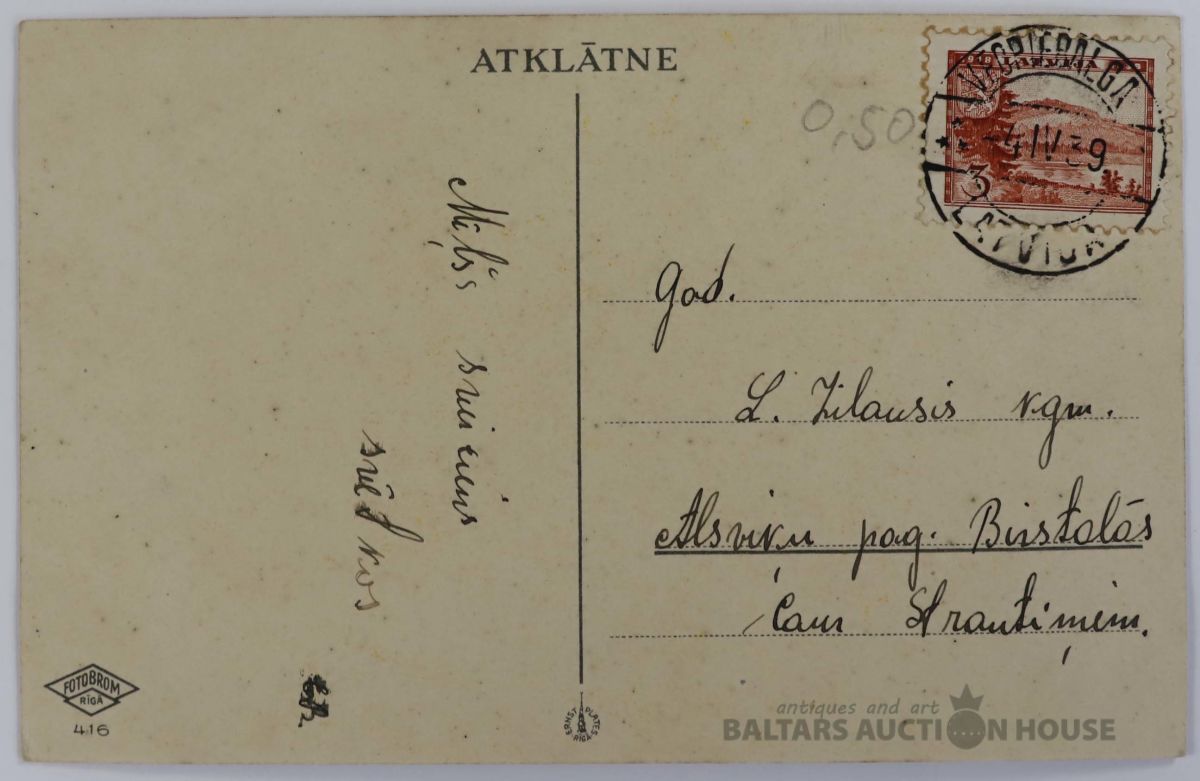 ATKLĀTNE
0,50
1918
3
VECPIEBALGA
-4 IV 39
LATVIJA
Mīļš sveiciens
svētkos
God.
L. Zilausis kgm.
Alsviķu pag. Birstalās
Caur Strautiņiem.
FOTOBROM
RĪGĀ
416
ERNST PLATES RĪGĀ
antiques and art
BALTARS AUCTION HOUSE